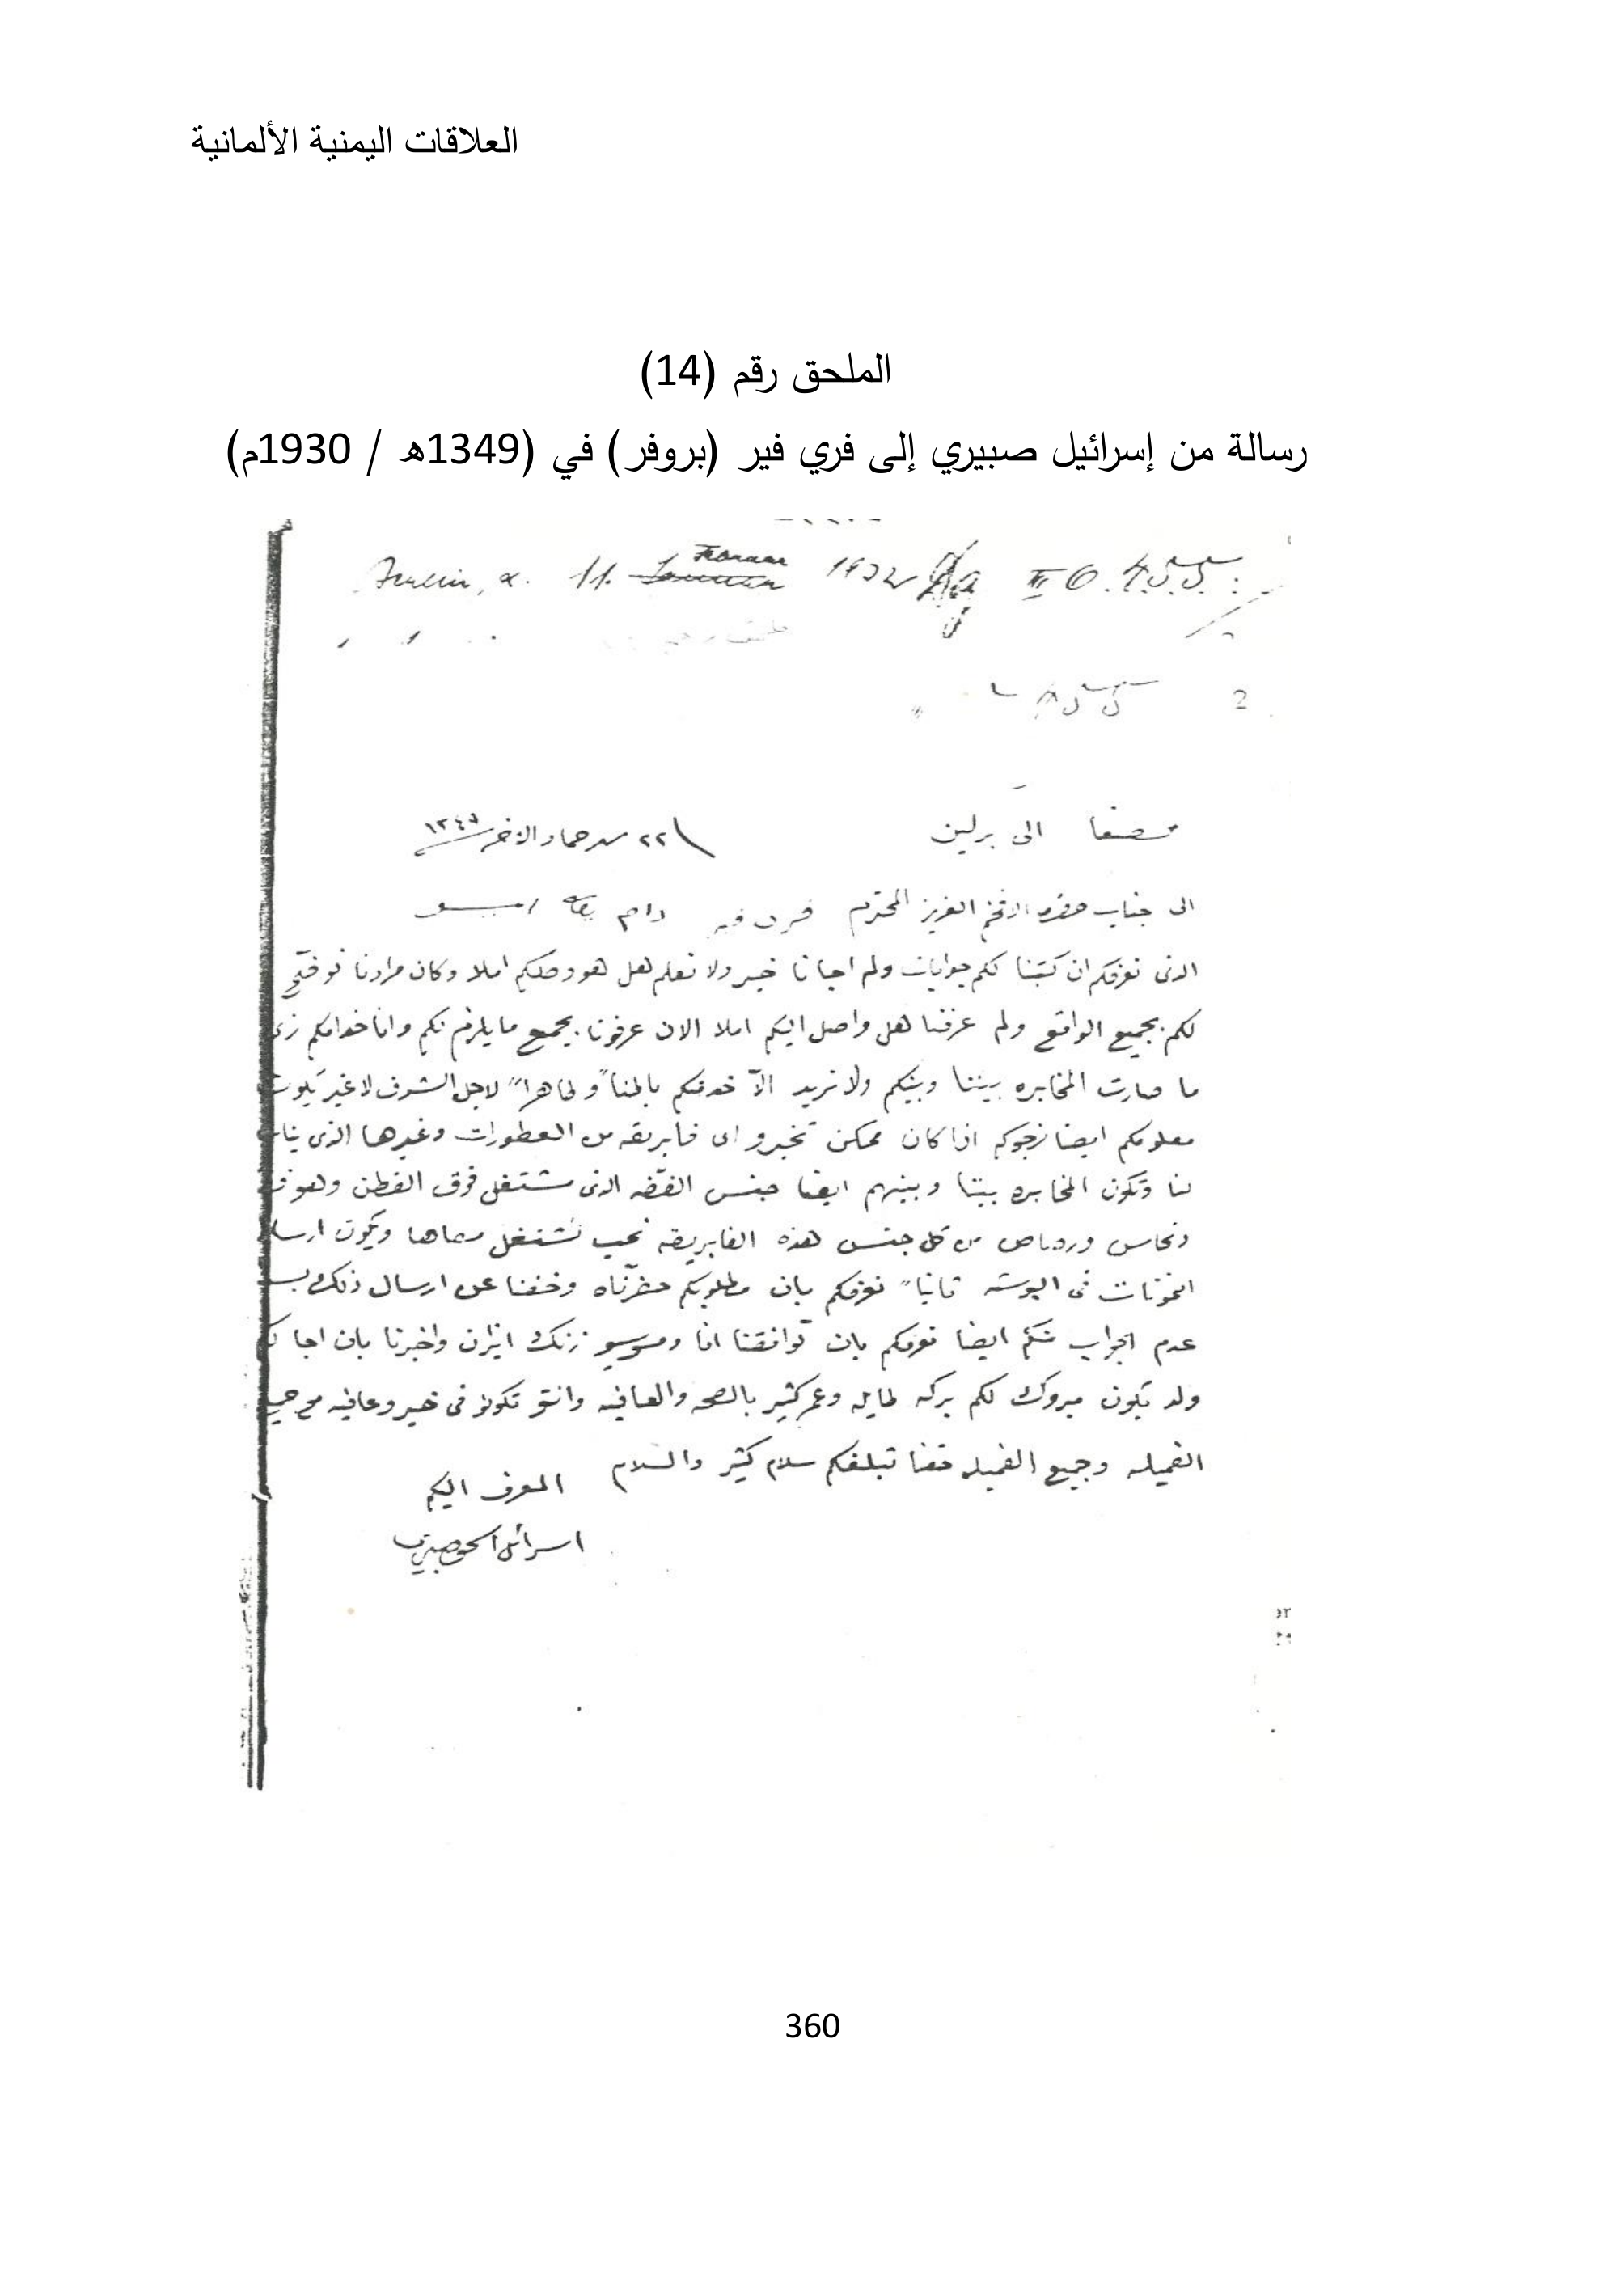 العلاقات اليمنية الألمانية
الملحق رقم (14)
رسالة من إسرائيل صبيري إلى فري فير (بروفر) في (1349ه / 1930م)
11. 1932 III O.
2
من صنعا الى برلين
٢٢ الاخر ١٣٤٩
الى جناب حضرة الافخم العزيز المحترم فرى فير دام بقاه
الذى نعرفكم ان كتبنا لكم جوابات ولم اجانا خبر ولا نعلم هل هو وصلكم املا وكان مرادنا
لكم بجميع الواقع ولم عرفنا هل واصل اليكم املا الان عرفونا بجميع ما يلزم لكم وانا خدامكم زى
ما صارت المخابره بيننا وبينكم ولا نريد الآ خدمتكم باطناً وظاهراً لاجل الشرف لا غير يكون
معلومكم ايضا نرجوكم اذا كان ممكن تخبرو اى فابريقه من العطورات وغيرها الذى
لنا وتكون المخابره بيننا وبينهم ايضا جنس الفضه الذى مشتغل فوق القطن وهو
ونحاس ورصاص من كل جنس هذه الفابريقه نحب نشتغل معاها ويكون
النمونات فى البوسته ثانياً نعرفكم بان مطلوبكم حضرناه وخفنا عن ارسال ذلك
عدم الجواب منكم ايضا نعرفكم بان توافقنا انا ومسيو واخبرنا بان اجا
ولد يكون مبروك لكم بركه طايله وعمر كثير بالصحه والعافيه وانتو تكونو فى خير وعافيه مع
الفميله وجميع الفميله حقنا تبلغكم سلام كثير والسلام
المعرف اليكم
اسرائيل صبيرى
360